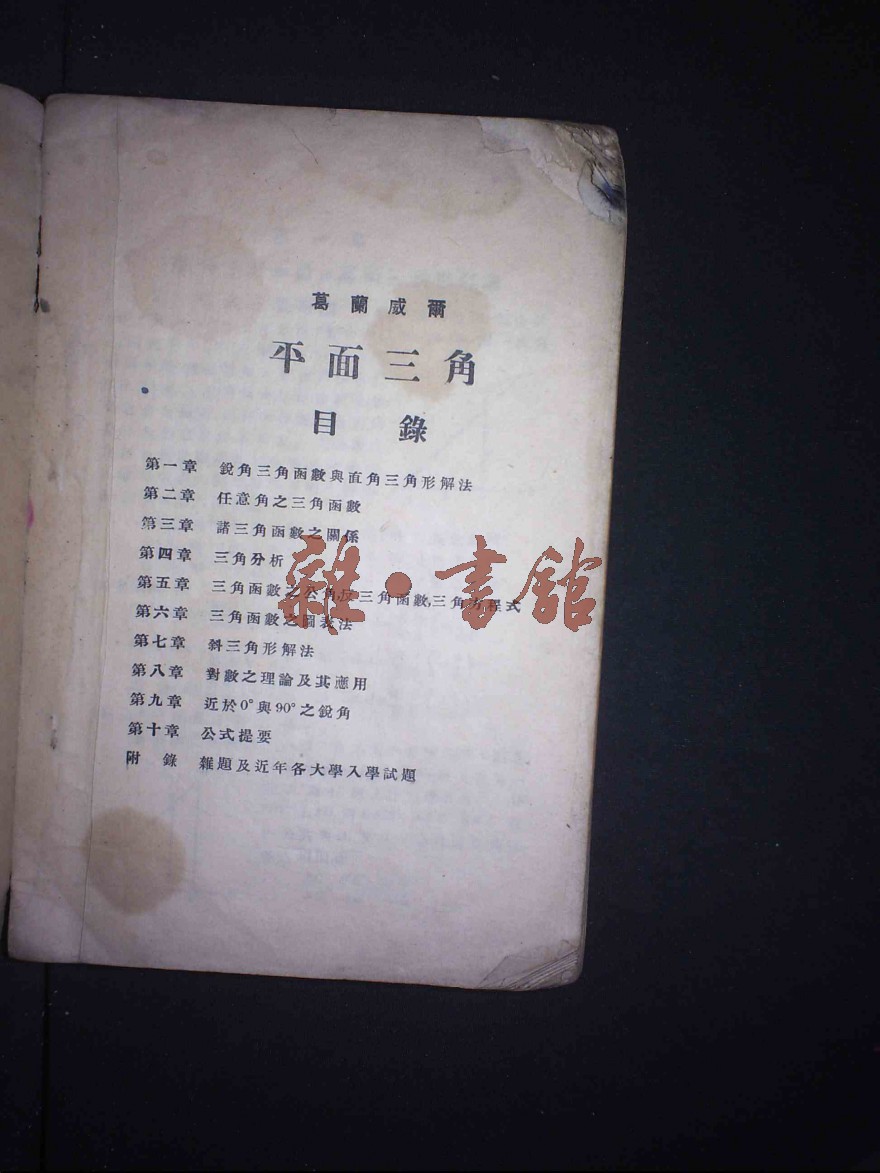 葛蘭威爾
平面三角
目錄
第一章 銳角三角函數與直角三角形解法
第二章 任意角之三角函數
第三章 諸三角函數之關係
第四章 三角分析
第五章 三角函數之公角,反三角函數,三角方程式
第六章 三角函數之圖表法
第七章 斜三角形解法
第八章 對數之理論及其應用
第九章 近於0°與90°之銳角
第十章 公式提要
附錄 雜題及近年各大學入學試題
雜·書館